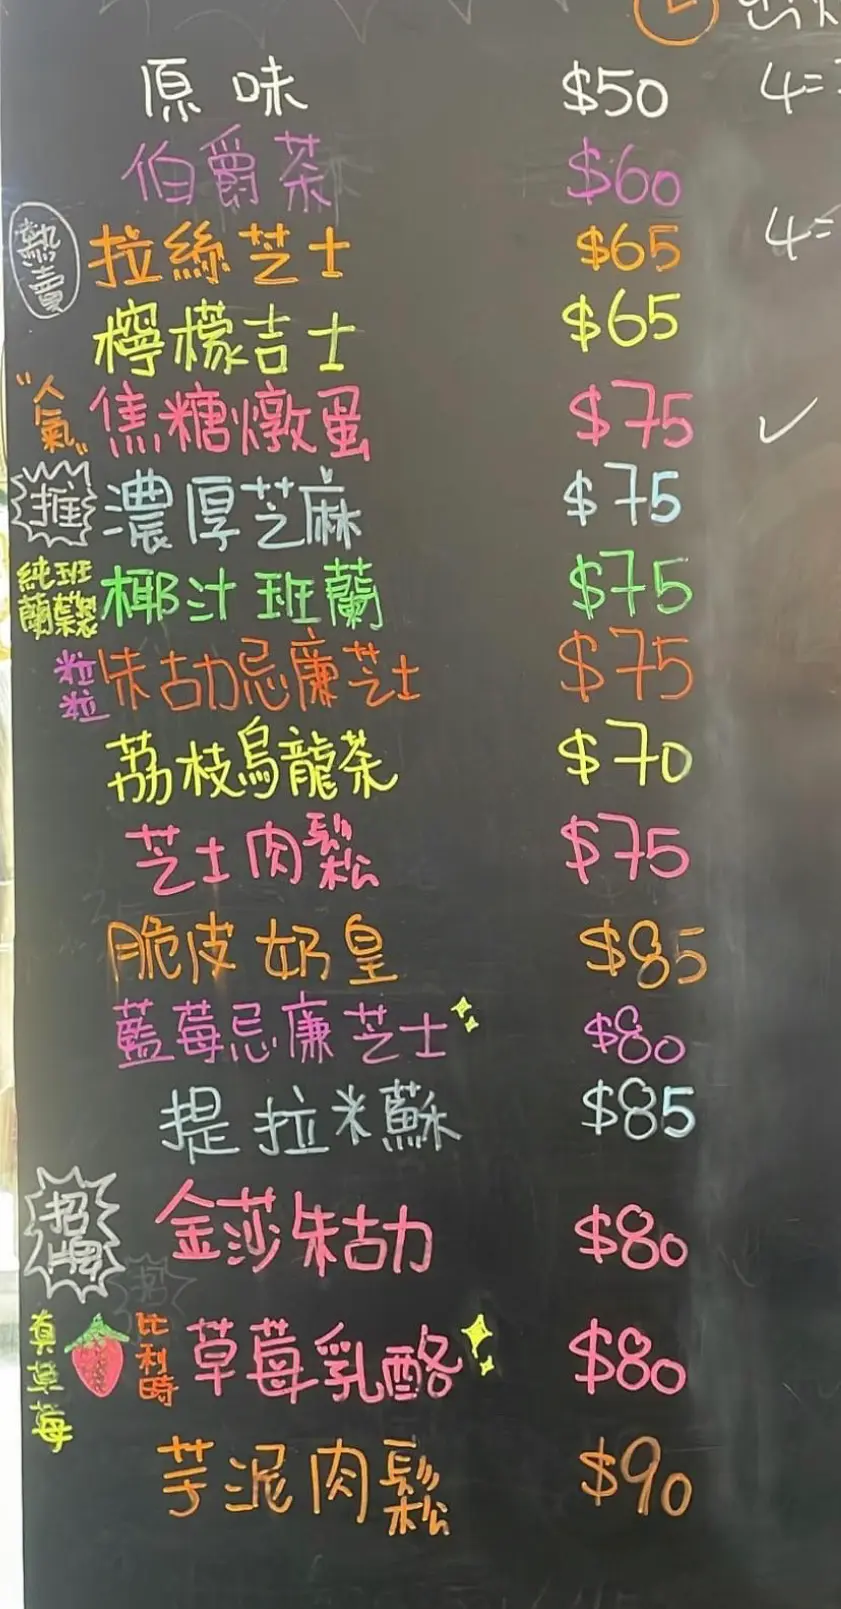 原味 $50 4=
伯爵茶 $60
熱賣 拉絲芝士 $65 4=
檸檬吉士 $65
"人氣" 焦糖燉蛋 $75 ✓
推 濃厚芝麻 $75
純班蘭葉製 椰汁班蘭 $75
粒粒 朱古力忌廉芝士 $75
荔枝烏龍茶 $70
芝士肉鬆 $75
脆皮奶皇 $85
藍莓忌廉芝士 $80
提拉米蘇 $85
招牌 金莎朱古力 $80
真草莓 比利時 草莓乳酪 $80
芋泥肉鬆 $90